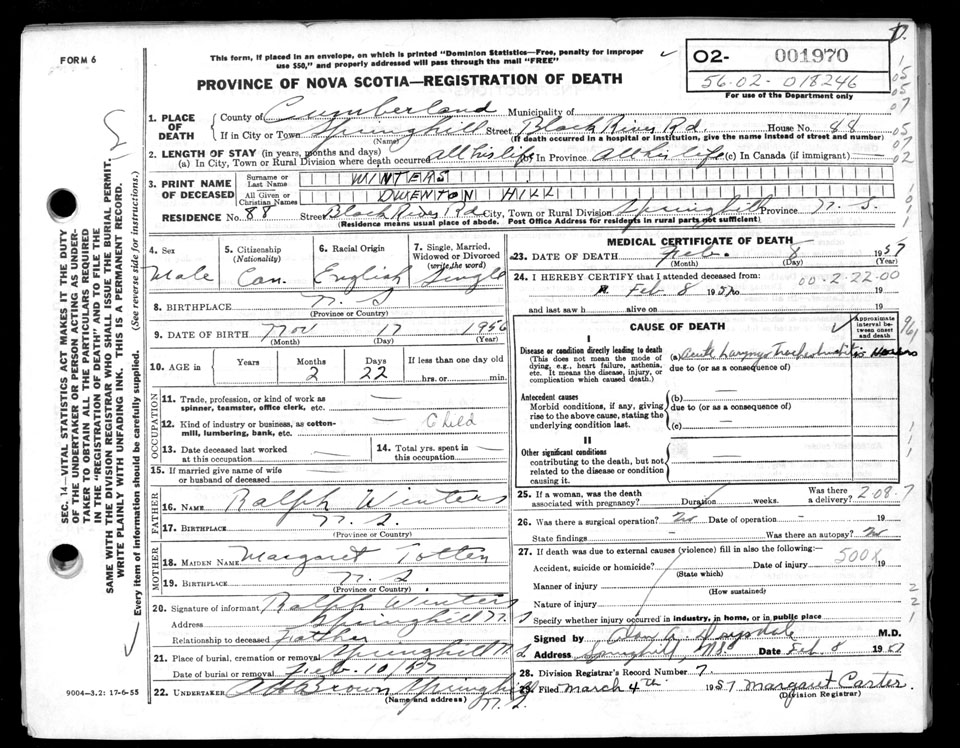 FORM 6
This form, if placed in an envelope, on which is printed "Dominion Statistics—Free, penalty for improper
use $50," and properly addressed will pass through the mail "FREE"
O2- 001970
56-02-018246
For use of the Department only
PROVINCE OF NOVA SCOTIA—REGISTRATION OF DEATH
1. PLACE OF DEATH
County of Cumberland Municipality of
If in City or Town Springhill Street Black River Rd. House No. 88
(Name) (If death occurred in a hospital or institution, give the name instead of street and number)
2. LENGTH OF STAY (in years, months and days)
(a) In City, Town or Rural Division where death occurred all his life (b) In Province all his life (c) In Canada (if immigrant)
3. PRINT NAME OF DECEASED
Surname or Last Name WINTERS
All Given or Christian Names HILL
RESIDENCE No. 88 Street Black River Rd City, Town or Rural Division Springhill Province N.S.
(Residence means usual place of abode. Post Office Address for residents in rural parts not sufficient)
4. Sex Male
5. Citizenship (Nationality) Can.
6. Racial Origin English
7. Single, Married, Widowed or Divorced (write the word) Single
8. BIRTHPLACE N.S
(Province or County)
9. DATE OF BIRTH Nov 17 1956
(Month) (Day) (Year)
10. AGE in Years Months 2 Days 22 If less than one day old hrs. or min.
OCCUPATION
11. Trade, profession, or kind of work as
spinner, teamster, office clerk, etc. —
12. Kind of industry or business, as cotton-
mill, lumbering, bank, etc. Child
13. Date deceased last worked
at this occupation —
14. Total yrs. spent in
this occupation —
15. If married give name of wife
or husband of deceased —
FATHER
16. NAME Ralph Winters
17. BIRTHPLACE N.S.
(Province or County)
MOTHER
18. MAIDEN NAME Margaret Totten
19. BIRTHPLACE N.S
(Province or County)
20. Signature of informant Ralph Winters
Address Springhill N.S
Relationship to deceased Father
21. Place of burial, cremation or removal Springhill N.S
Date of burial or removal Feb. 10/57
22. UNDERTAKER Brown Springhill
N.S.
(Name and address)
MEDICAL CERTIFICATE OF DEATH
23. DATE OF DEATH Feb. 8 1957
(Month) (Day) (Year)
24. I HEREBY CERTIFY that I attended deceased from:
00-2-22-00
Feb. 8 1957 to 19
and last saw h alive on 19
CAUSE OF DEATH
Approximate interval between onset and death
I
Disease or condition directly leading to death
(This does not mean the mode of dying, e.g., heart failure, asthenia, etc. It means the disease, injury, or complication which caused death.)
(a) Acute Laryngo Tracheobronchitis Hours
due to (or as a consequence of)
—
Antecedent causes
Morbid conditions, if any, giving rise to the above cause, stating the underlying condition last.
(b)
due to (or as a consequence of)
(c) —
II
Other significant conditions
contributing to the death, but not related to the disease or condition causing it. —
25. If a woman, was the death
associated with pregnancy? Duration weeks. Was there a delivery? 208-7
26. Was there a surgical operation? No Date of operation – 19
State findings – Was there an autopsy? No
27. If death was due to external causes (violence) fill in also the following:—
Accident, suicide or homicide? Date of injury 500X 19
(State which)
Manner of injury
(How sustained)
Nature of injury
Specify whether injury occurred in industry, in home, or in public place
Signed by M.D.
Address Springhill NS Date Feb. 8 1957
28. Division Registrar's Record Number 7.
29. Filed March 4th 1957 Margaret Carter.
(Division Registrar)
SEC. 14—VITAL STATISTICS ACT MAKES IT THE DUTY
OF THE UNDERTAKER OR PERSON ACTING AS UNDER-
TAKER TO OBTAIN ALL THE PARTICULARS REQUIRED
IN THE "REGISTRATION OF DEATH" AND TO FILE THE
SAME WITH THE DIVISION REGISTRAR WHO SHALL ISSUE THE BURIAL PERMIT.
WRITE PLAINLY WITH UNFADING INK. THIS IS A PERMANENT RECORD.
Every item of information should be carefully supplied. (See reverse side for instructions.)
9004—3.2: 17-6-55